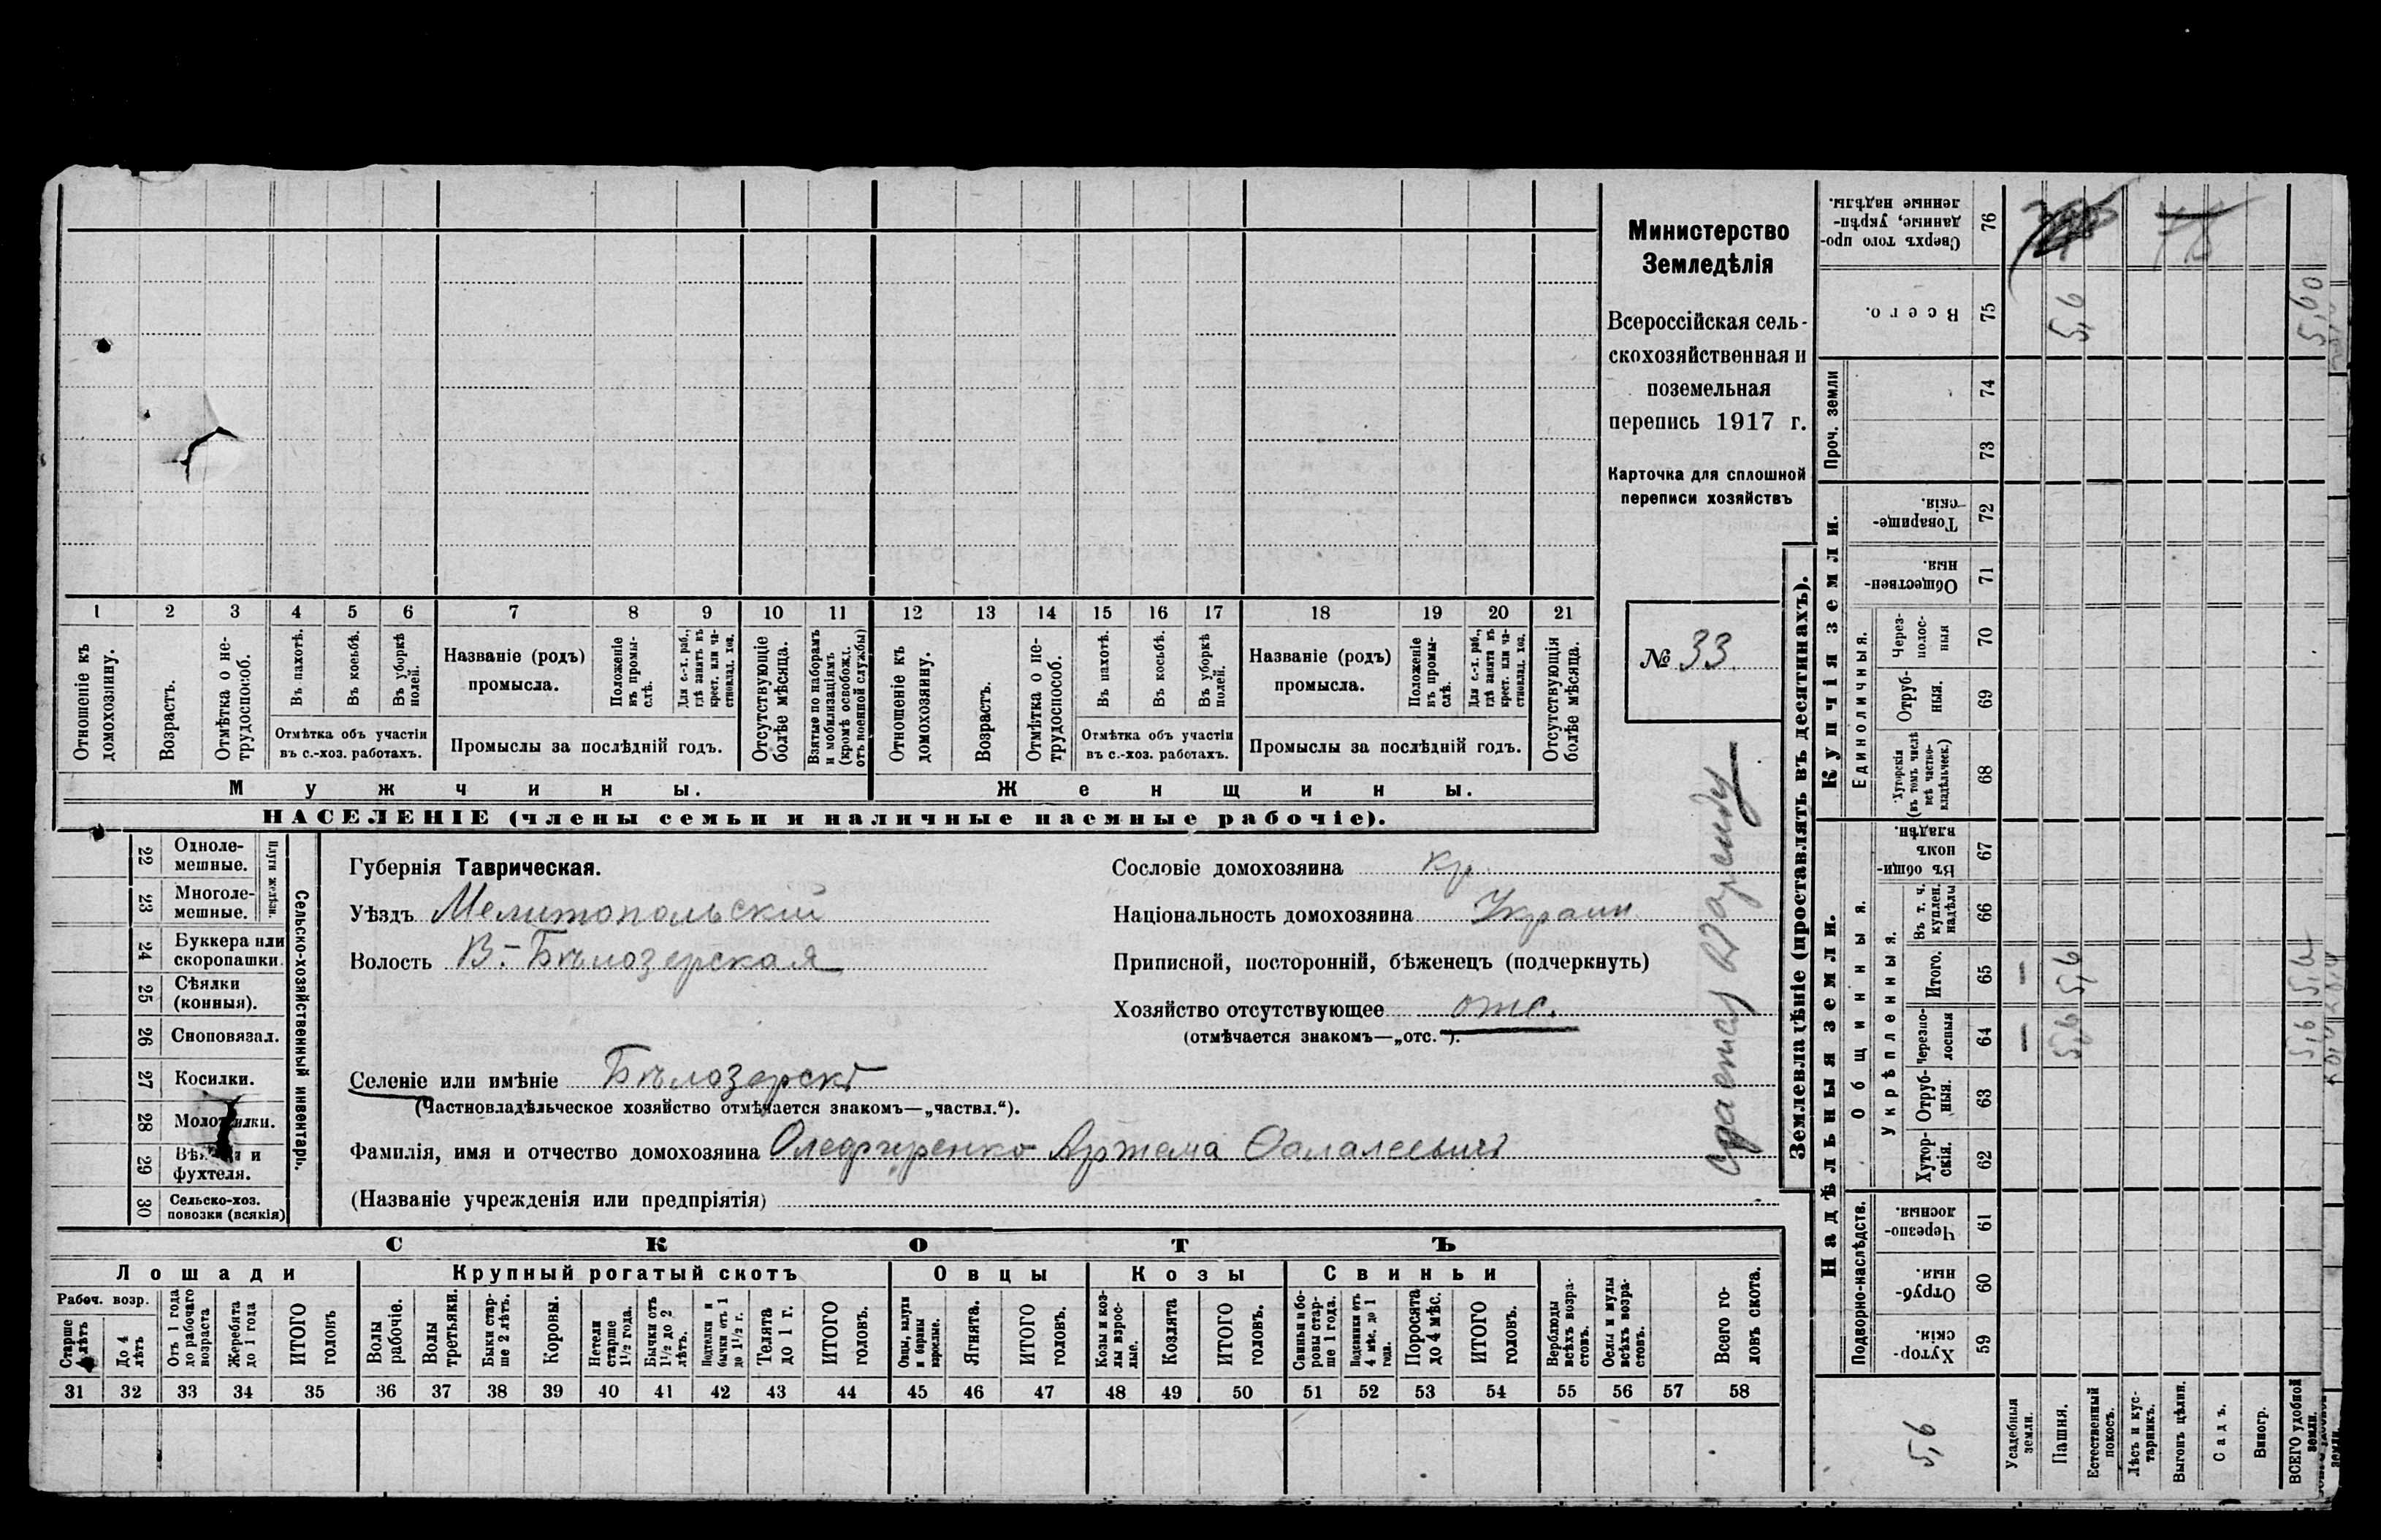 Министерство
Земледѣлія
Всероссійская сель-
скохозяйственная и
поземельная
перепись 1917 г.
Карточка для сплошной
переписи хозяйствъ
№ 33.
1 2 3 4 5 6 7 8 9 10 11 12 13 14 15 16 17 18 19 20 21
Отношеніе къ домохозяину.
Возрастъ.
Отмѣтка о не-трудоспособ.
Въ пахотѣ.
Въ косьбѣ.
Въ уборкѣ полей.
Отмѣтка объ участіи
въ с.-хоз. работахъ.
Названіе (родъ)
промысла.
Положеніе въ промы-слѣ.
Для с.-х. раб., гдѣ занятъ въ крест. или ча-стновлад. хоз.
Промыслы за послѣдній годъ.
Отсутствующіе болѣе мѣсяца.
Взятые по наборамъ и мобилизаціямъ (кромѣ освобожд. отъ военной службы)
Отношеніе къ домохозяину.
Возрастъ.
Отмѣтка о не-трудоспособ.
Въ пахотѣ.
Въ косьбѣ.
Въ уборкѣ полей.
Отмѣтка объ участіи
въ с.-хоз. работахъ.
Названіе (родъ)
промысла.
Положеніе въ промы-слѣ.
Для с.-х. раб., гдѣ занята въ крест. или ча-стновлад. хоз.
Промыслы за послѣдній годъ.
Отсутствующія болѣе мѣсяца.
Мужчины.
Женщины.
НАСЕЛЕНІЕ (члены семьи и наличные наемные рабочіе).
Сельско-хозяйственный инвентарь.
Плуги желѣзн.
22 Одноле-мешные.
23 Многоле-мешные.
24 Буккера или скоропашки.
25 Сѣялки (конныя).
26 Сноповязал.
27 Косилки.
28 Молотилки.
29 фухтеля.
30 Сельско-хоз. повозки (всякія)
Губернія Таврическая.
Уѣздъ Мелитопольскій
Волость В.-Бѣлозерская
Селеніе или имѣніе Бѣлозерскъ
(Частновладѣльческое хозяйство отмѣчается знакомъ—„частвл.“).
Фамилія, имя и отчество домохозяина Олефиренко Артема
(Названіе учрежденія или предпріятія)
Сословіе домохозяина кр.
Національность домохозяина Украин.
Приписной, посторонній, бѣженецъ (подчеркнуть)
Хозяйство отсутствующее отс.
(отмѣчается знакомъ—„отс.“).
аренду
СКОТЪ
Лошади
Крупный рогатый скотъ
Овцы
Козы
Свиньи
Рабоч. возр.
Старше 4 лѣтъ
До 4 лѣтъ
Отъ 1 года до рабочаго возраста
Жеребята до 1 года
ИТОГО головъ
Волы рабочіе.
Волы третьяки.
Быки стар-ше 2 лѣтъ.
Коровы.
Нетели старше 1½ года.
Бычки отъ 1½ до 2 лѣтъ.
Подтелки и бычки отъ 1 до 1½ г.
Телята до 1 г.
ИТОГО головъ.
Овцы, валухи и бараны взрослые.
Ягнята.
ИТОГО головъ.
Козы и коз-лы взрос-лые.
Козлята
ИТОГО головъ.
Свиньи и бо-ровы стар-ше 1 года.
Подсвинки отъ 4 мѣс. до 1 года.
Поросята до 4 мѣс.
ИТОГО головъ.
Верблюды всѣхъ возра-стовъ.
Ослы и мулы всѣхъ возра-стовъ.
Всего го-ловъ скота.
31 32 33 34 35 36 37 38 39 40 41 42 43 44 45 46 47 48 49 50 51 52 53 54 55 56 57 58
Землевладѣніе (проставлять въ десятинахъ).
Надѣльныя земли.
Купчія земли.
Проч. земли
Подворно-наслѣдств.
Общинныя.
Укрѣпленныя.
Единоличныя.
Хутор-скія. 59
Отруб-ныя. 60
Черезпо-лосныя. 61
Хутор-скія. 62
Отруб-ныя. 63
Черезпо-лосныя 64
Итого. 65
Въ т. ч. куплен. надѣлы 66
Въ общи-номъ владѣн. 67
Хуторскія (въ томъ числѣ всѣ частно-владѣльческ.) 68
Отруб-ныя. 69
Через-полос-ныя 70
Обществен-ныя. 71
Товарище-скія. 72
73
74
Всего. 75
Сверхъ того про-данные, укрѣп-ленные надѣлы. 76
5,6
Усадебныя земли. — —
Пашня. 5,6 5,6 5,6
Естественный покосъ.
Лѣсъ и кус-тарникъ.
Выгонъ цѣлин.
Садъ.
Виногр.
ВСЕГО удобной земли. 5,6 5,6 5,60